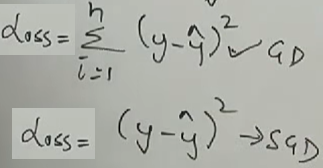 Loss = n∑i=1 (y-ŷ)² ✓ GD
Loss = (y-ŷ)² → SGD